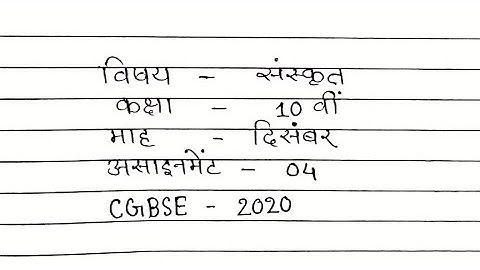 विषय - संस्कृत
कक्षा - 10 वीं
माह - दिसंबर
असाइनमेंट - 04
CGBSE - 2020